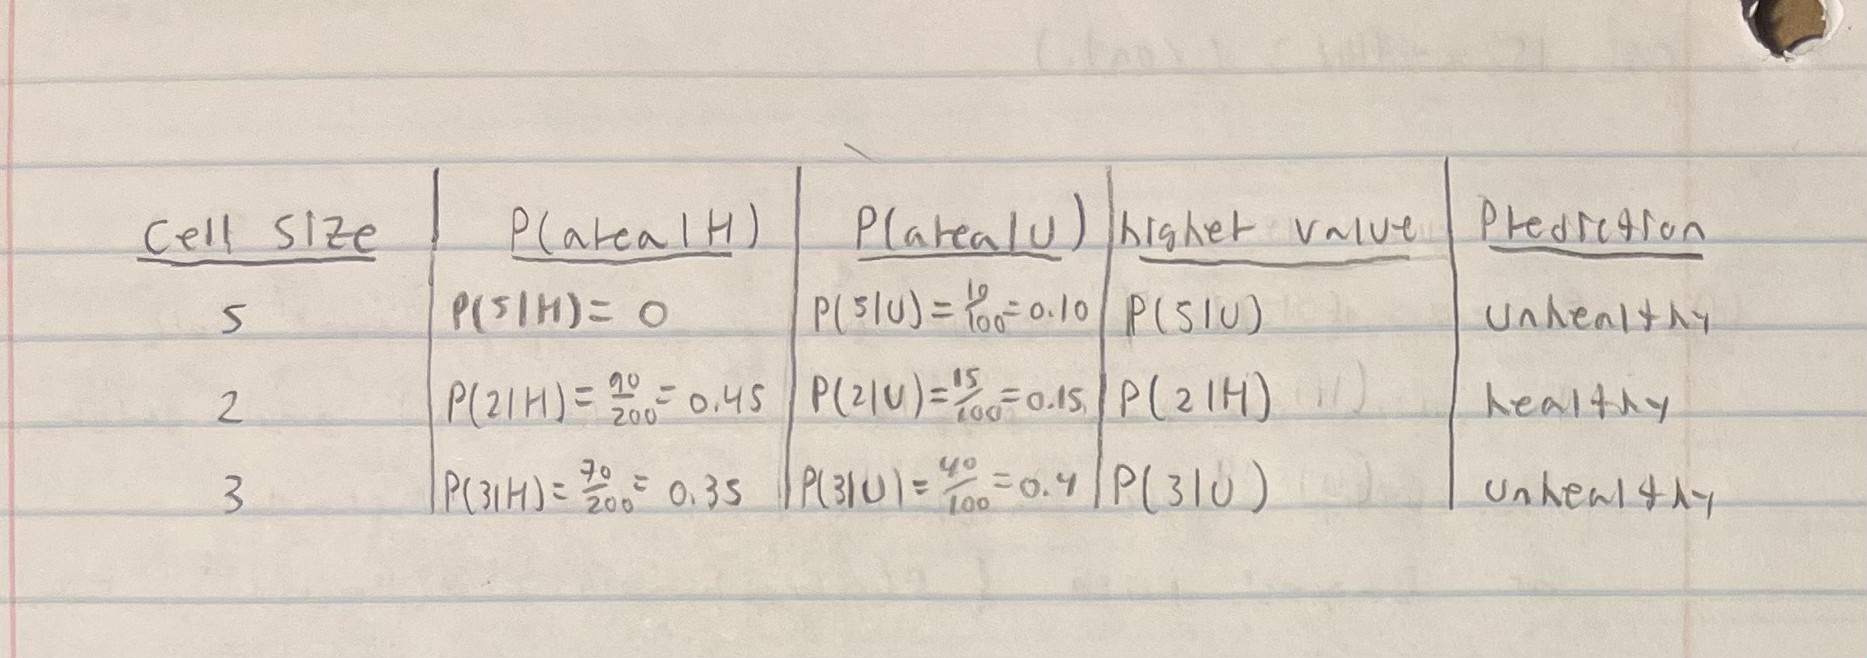 Cell Size P(area|H) P(area|U) higher value Prediction
5 P(5|H)= 0 P(5|U)= 10/100 = 0.10 P(5|U) unhealthy
2 P(2|H)= 90/200 = 0.45 P(2|U)= 15/100 = 0.15 P(2|H) healthy
3 P(3|H)= 70/200 = 0.35 P(3|U)= 40/100 = 0.4 P(3|U) unhealthy